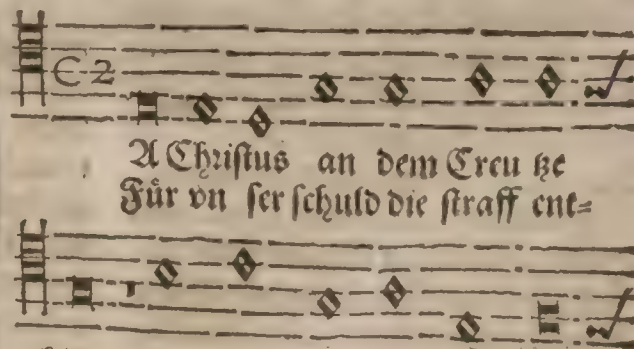 C2
A Christus an dem Creu tze
Für vn ser schuld die straff ent=